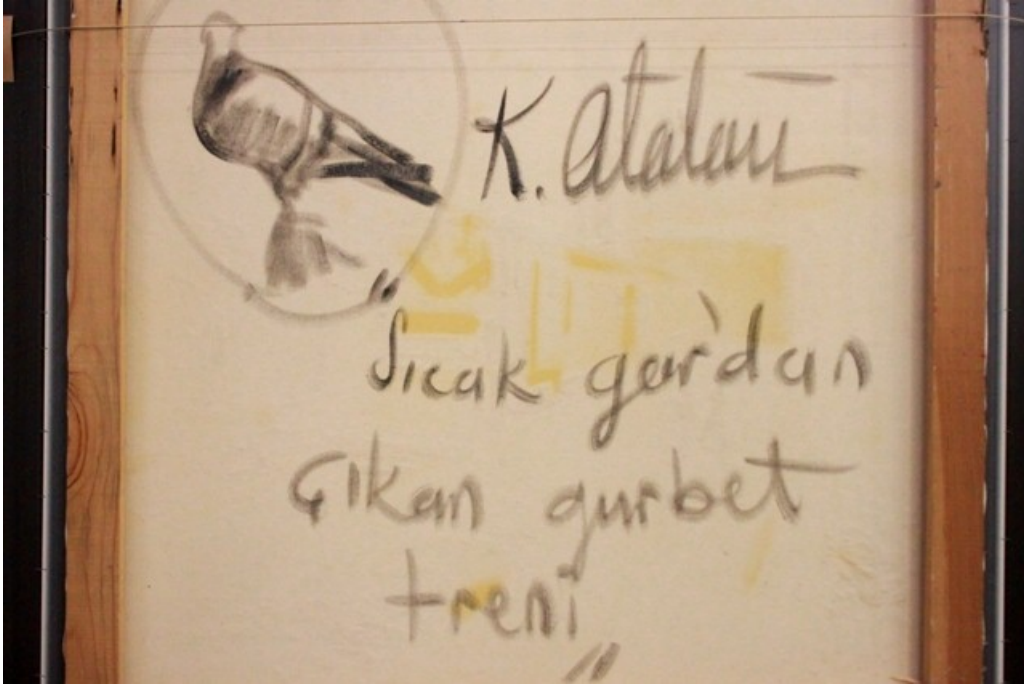 K. Atalay
"Sıcak gar'dan
çıkan gurbet
treni"